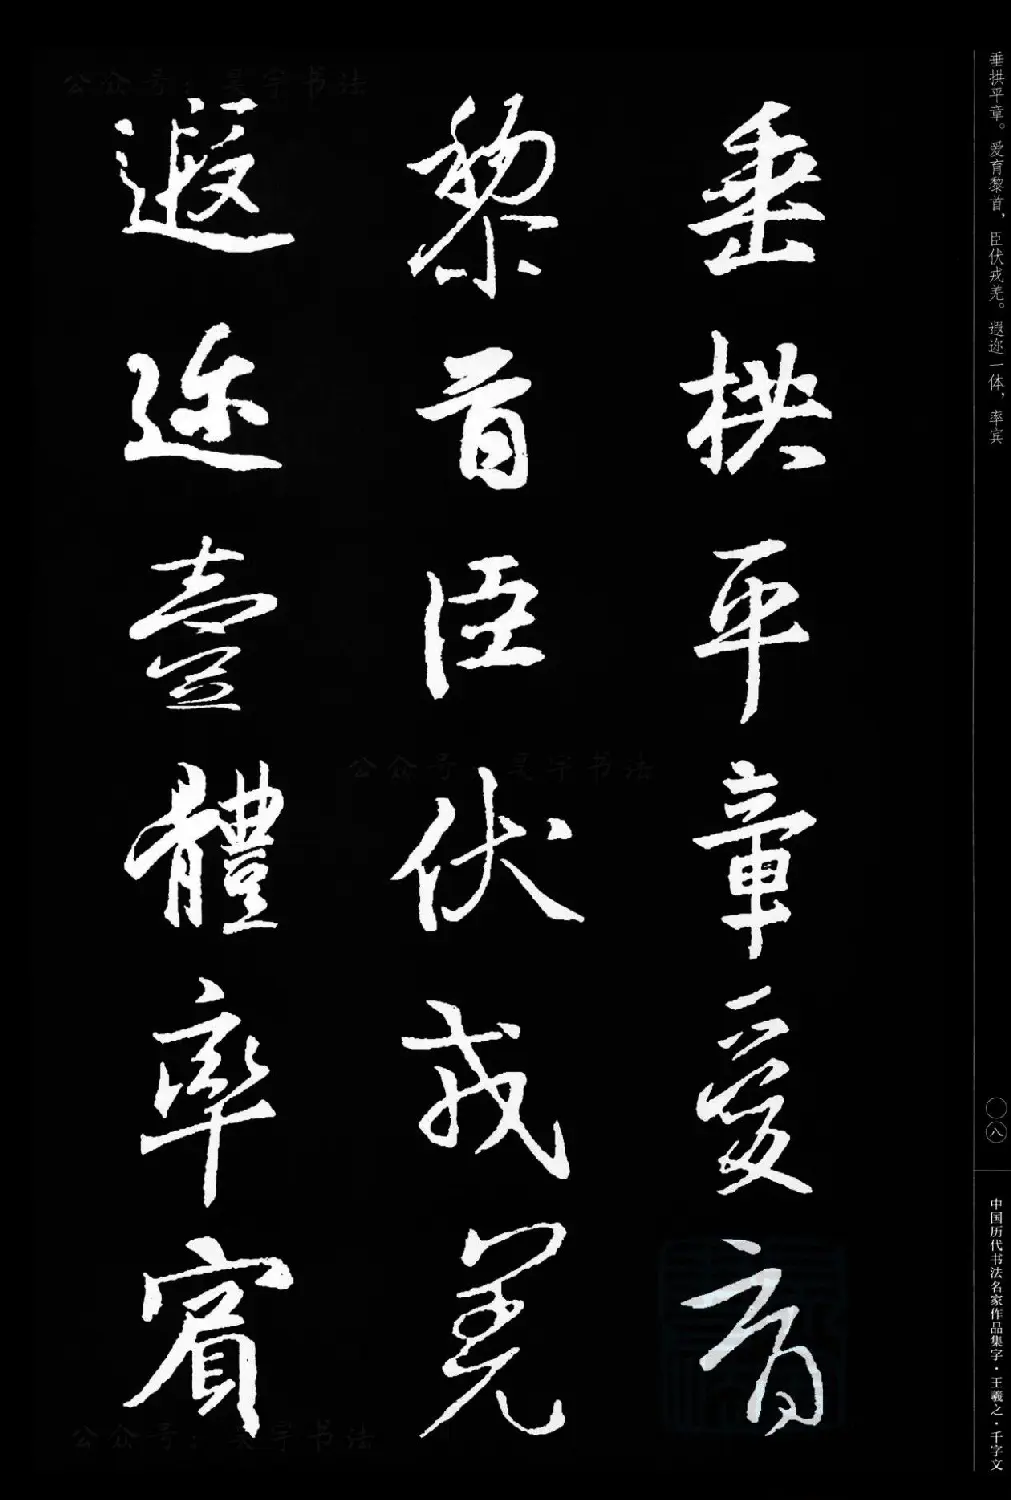 垂拱平章愛育
黎首臣伏戎羌
遐迩壹體率賓
垂拱平章。爱育黎首，臣伏戎羌。遐迩一体，率宾
〇八
中国历代书法名家作品集字·王羲之·千字文
公众号：昊宇书法
公众号：昊宇书法
公众号：昊宇书法